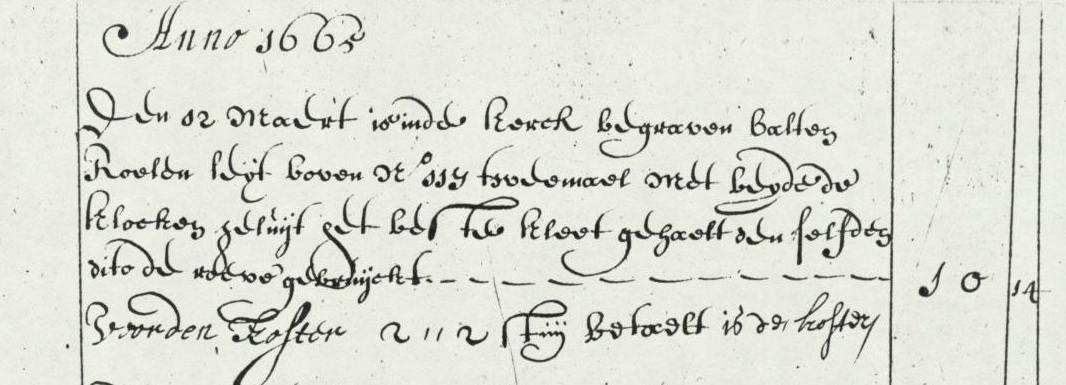 Anno 1665
Den 12 Maert is inde kerck begraven balten
Roelen leyt boven No 115 tweemael met beyde de
klocken geluijt het beste kleet gehaelt den selfden
dito de roewe gebruijckt. 10 14
Voorden Koster 2 11 2 stuij betaelt is de koster